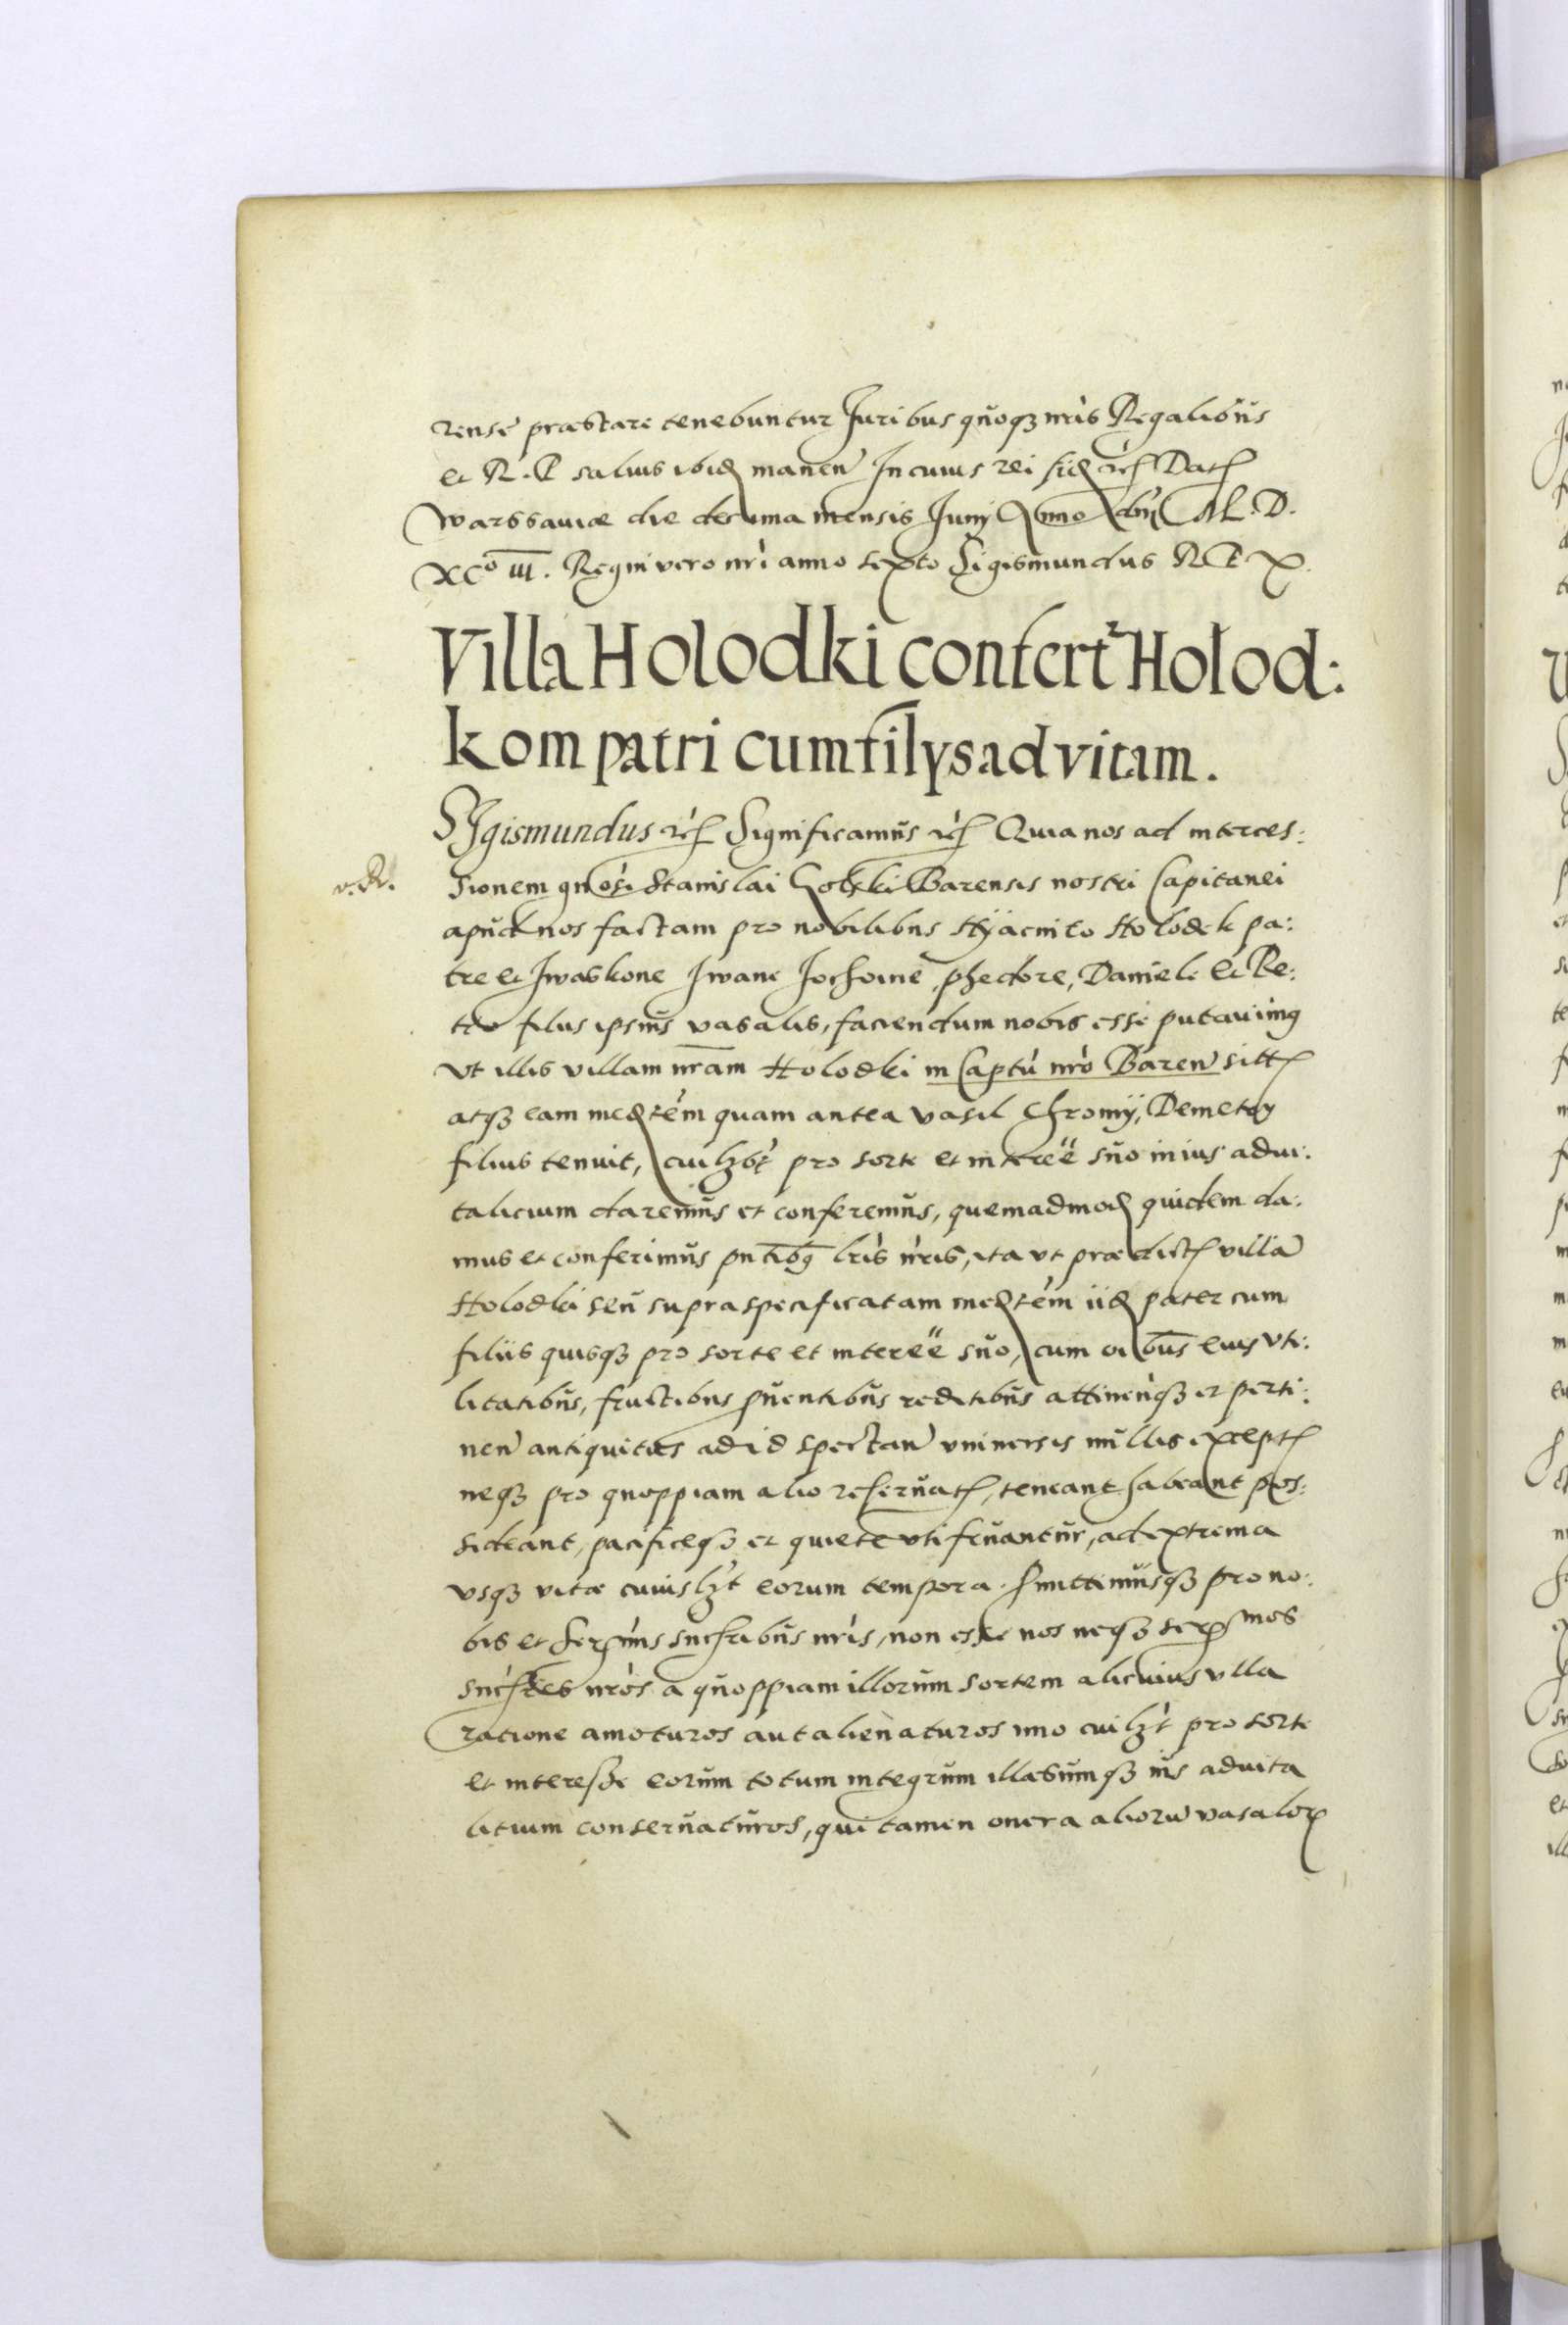 rense præstare tenebuntur Juribus quoqz nris Regalibus
et R. P. saluis ibid manen In cuius rei fid etc Dat
Warssauiæ die decima mensis Junij Anno dni M. D.
XCo III. Regni vero nri anno sexto Sigismundus R P X
Villa Holodki confertr Holod:
kom patri cum filijs ad vitam.
Sigismundus etc Significamus etc Quia nos ad interces:
v. R.
sionem gnosi Stanislai Golski Barensis nostri Capitanei
apud nos factam pro nobilibus Hyacinto Holodek pa:
tre et Iwaskone Iwane Jochime, phedore, Daniele et Pe:
tro filiis ipsius vasalis, faciendum nobis esse putauimq
vt illis villam nram Holodki in Captu nro Baren sitt
atqz eam medtem quam antea vasil Chromy, Demetry
filius tenuit, cuilzbt pro sorte et interee suo in ius adui:
talicium daremus et conferemus, quemadmod quidem da:
mus et conferimus pntibq lris nris, ita vt prædict villa
Holodki seu supraspecificatam medtem iid pater cum
filiis quisqz pro sorte et interee suo, cum oibus eius vti:
litatibus, fructibus puentibus reditibus attinenqz et perti:
nen antiquitus ad id spectan vniuersis nullis except
neqz pro quoppiam alio reseruat, teneant habeant pos:
sideant, pacificeqz et quiete vti fruantur, ad extrema
vsqz vitæ cuiuslzt eorum tempora. Pmittimusqz pro no:
bis et serssimis succribus nris, non esse nos neqz serssmos
succres nros a quoppiam illorum sortem alicuius vlla
ratione amoturos aut alienaturos imo cuilzt pro sorte
et interesse eorum totum integrum illæsumqz ius aduita
litium conseruaturos, qui tamen onera aliorum vasalor